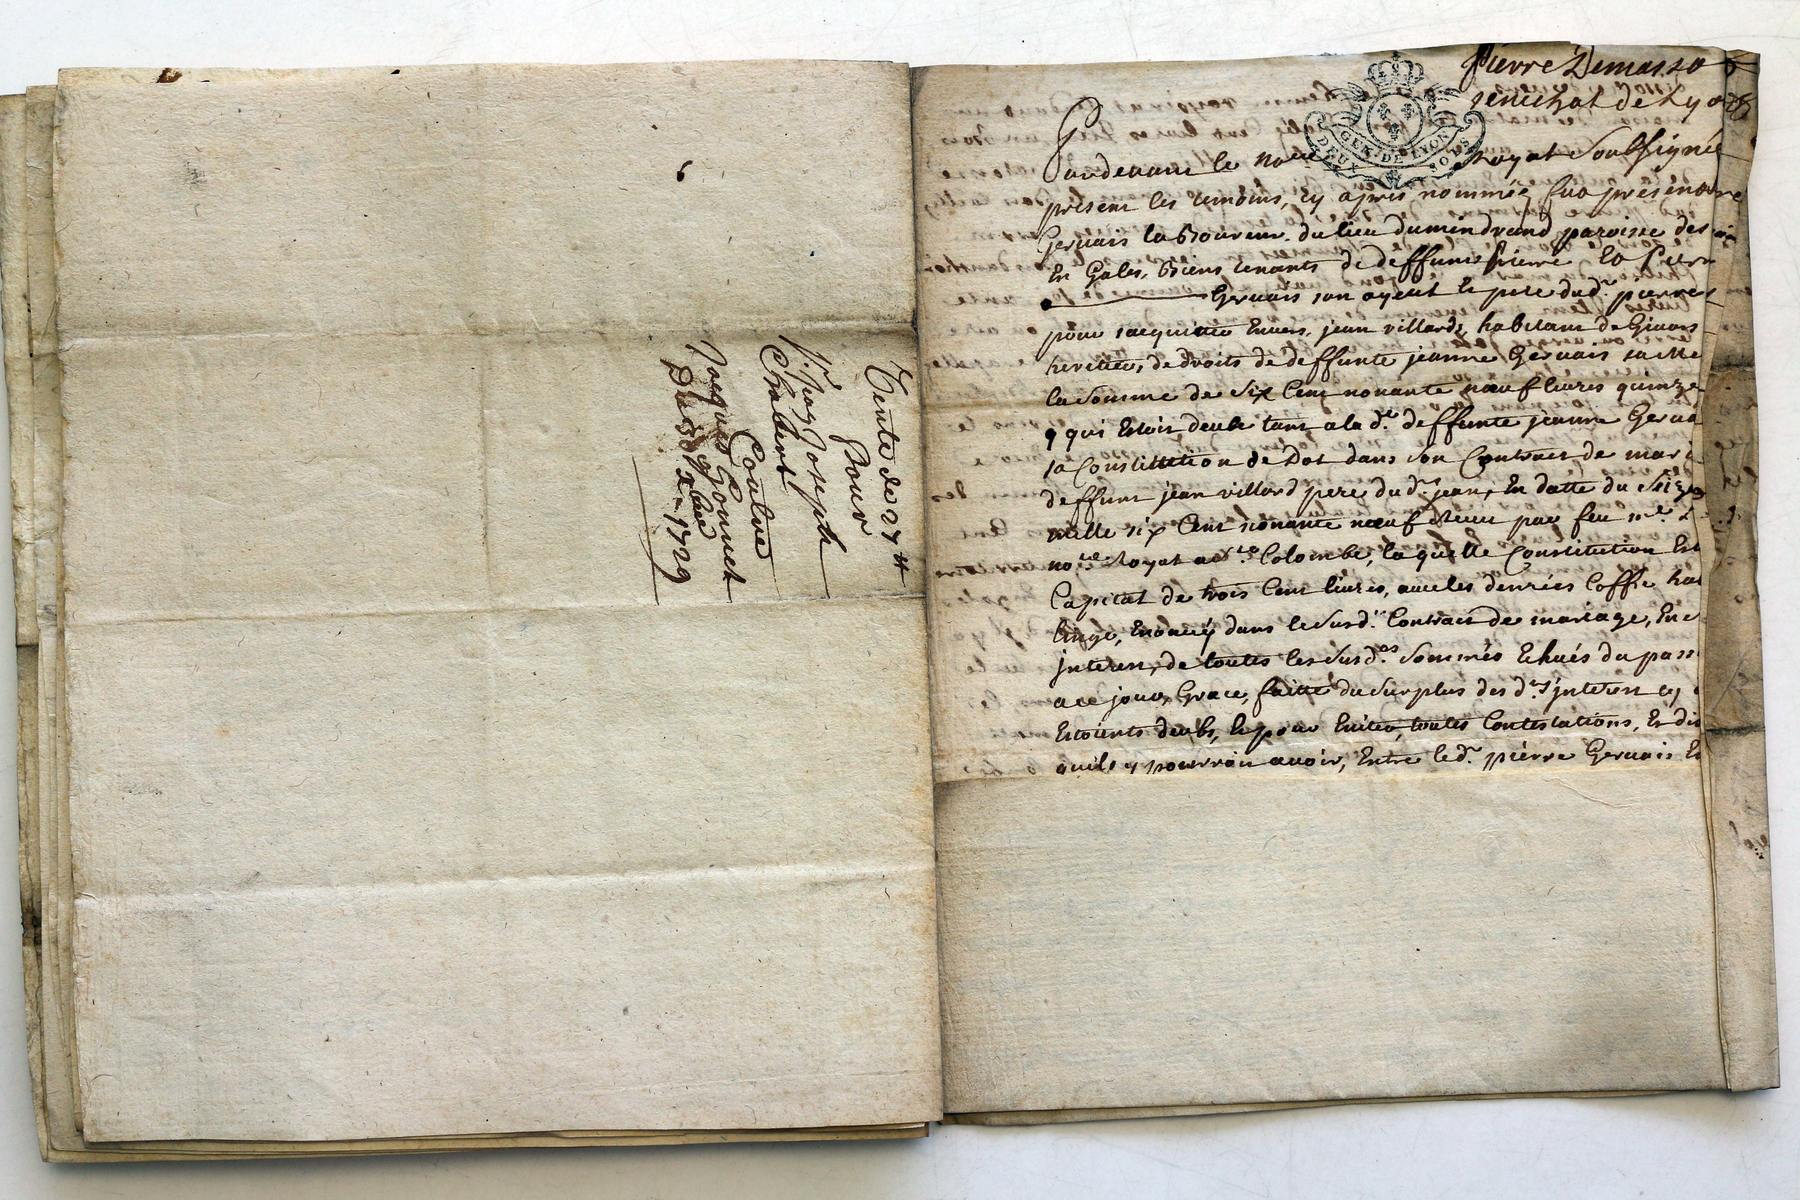 Vente de 27 lt
Pour
Sr. Joseph
Chalbert
Contre
Jacques Gonnet
Du 1729
Pierre Demasso
senechal de Lyon
GEN. DE LYON
DEUX SOVS
Pardevant le nore Royal Soussigné
present les temoins, cy apres nommés fut present
Gervais laboureur du lieu dumindrand paroisse des
Et Gales, Biens tenants de deffunt Pierre
Gervais son ayeul le pere dudt. pierre
pour sacquitter Envers, jean villard, habitant de Givors
heritier, de droits de deffunte jeanne Gervais sa Me
la somme de six Cent nonante neuf livres quinze
qui Estoit deube tant a la de. deffunte jeanne Gerva
sa Constitution de Dot dans son Contract de mari
deffunt jean villard pere dudt. jean, En datte du seize
mille six Cent nonante neuf Receu par feu me.
nore. Royal a ste. Colombe, la quelle Constitution Est
Capital de trois Cent livres, avec les denrées Coffre hab
linge, Enoncés dans le susdt. Contract de mariage, En
jnterest, de toutes les susdes. sommes Echués du pass
a ce jour, Grace, faitte du surplus des dts. jnterest
Estoients deubs, Et pour Eviter, toutes Contestations, Et di
quils y pourroit avoir, Entre le dt. pierre Gervais Et